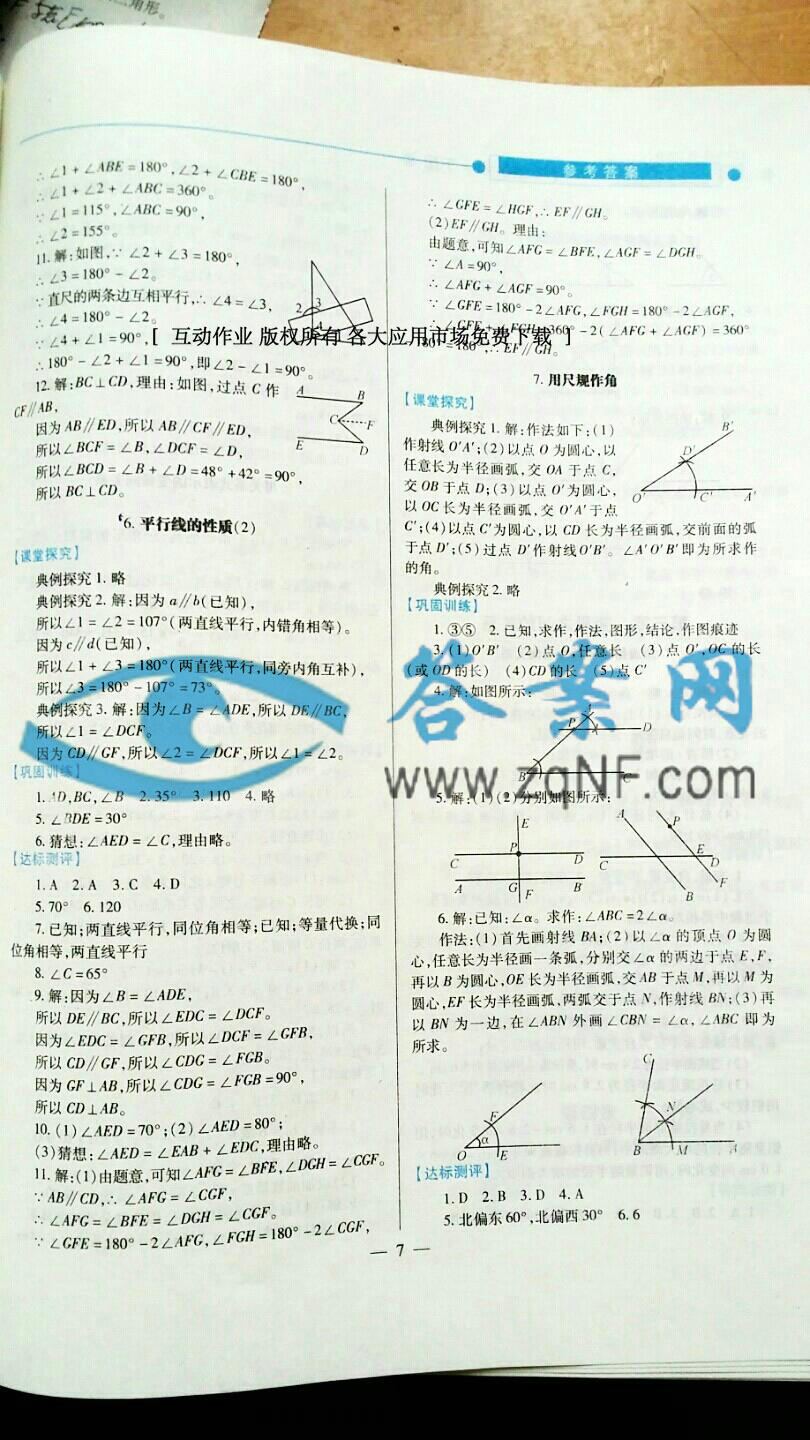 角形。
参考答案
∴∠1+∠ABE=180°,∠2+∠CBE=180°,
∴∠1+∠2+∠ABC=360°。
∵∠1=115°,∠ABC=90°,
∴∠2=155°。
11.解:如图,∵∠2+∠3=180°,
∴∠3=180°-∠2。
∵直尺的两条边互相平行,∴∠4=∠3,
∴∠4=180°-∠2。
∵∠4+∠1=90°,
∴180°-∠2+∠1=90°,即∠2-∠1=90°。
2
3
[ 互动作业 版权所有 各大应用市场免费下载 ]
12.解:BC⊥CD,理由:如图,过点C作
CF∥AB,
因为AB∥ED,所以AB∥CF∥ED,
所以∠BCF=∠B,∠DCF=∠D,
所以∠BCD=∠B+∠D=48°+42°=90°,
所以BC⊥CD。
A B
C F
E D
6.平行线的性质(2)
【课堂探究】
典例探究1.略
典例探究2.解:因为a∥b(已知),
所以∠1=∠2=107°(两直线平行,内错角相等)。
因为c∥d(已知),
所以∠1+∠3=180°(两直线平行,同旁内角互补),
所以∠3=180°-107°=73°。
典例探究3.解:因为∠B=∠ADE,所以DE∥BC,
所以∠1=∠DCF。
因为CD∥GF,所以∠2=∠DCF,所以∠1=∠2。
【巩固训练】
1.AD,BC,∠B 2.35° 3.110 4.略
5.∠BDE=30°
6.猜想:∠AED=∠C,理由略。
【达标测评】
1.A 2.A 3.C 4.D
5.70° 6.120
7.已知;两直线平行,同位角相等;已知;等量代换;同
位角相等,两直线平行
8.∠C=65°
9.解:因为∠B=∠ADE,
所以DE∥BC,所以∠EDC=∠DCF。
因为∠EDC=∠GFB,所以∠DCF=∠GFB,
所以CD∥GF,所以∠CDG=∠FGB。
因为GF⊥AB,所以∠CDG=∠FGB=90°,
所以CD⊥AB。
10.(1)∠AED=70°;(2)∠AED=80°;
(3)猜想:∠AED=∠EAB+∠EDC,理由略。
11.解:(1)由题意,可知∠AFG=∠BFE,∠DGH=∠CGF。
∵AB∥CD,∴∠AFG=∠CGF,
∴∠AFG=∠BFE=∠DGH=∠CGF。
∵∠GFE=180°-2∠AFG,∠FGH=180°-2∠CGF,
∴∠GFE=∠HGF,∴EF∥GH。
(2)EF∥GH。理由:
由题意,可知∠AFG=∠BFE,∠AGF=∠DGH。
∵∠A=90°,
∴∠AFG+∠AGF=90°。
∵∠GFE=180°-2∠AFG,∠FGH=180°-2∠AGF,
∴∠GFE+∠FGH=360°-2(∠AFG+∠AGF)=360°
-180°=180°,∴EF∥GH。
7.用尺规作角
【课堂探究】
典例探究1.解:作法如下:(1)
作射线O′A′;(2)以点O为圆心,以
任意长为半径画弧,交OA于点C,
交OB于点D;(3)以点O′为圆心,
以OC长为半径画弧,交O′A′于点
C′;(4)以点C′为圆心,以CD长为半径画弧,交前面的弧
于点D′;(5)过点D′作射线O′B′。∠A′O′B′即为所求作
的角。
B′
D′
O′ C′ A′
典例探究2.略
【巩固训练】
1.③⑤ 2.已知,求作,作法,图形,结论,作图痕迹
3.(1)O′B′ (2)点O,任意长 (3)点O′,OC的长
(或OD的长) (4)CD的长 (5)点C′
4.解:如图所示:
P D
B C
答案网
www.zqNF.com
5.解:(1)(2)分别如图所示:
E
P
C D
A G F B
A P
C E D
B F
6.解:已知:∠α。求作:∠ABC=2∠α。
作法:(1)首先画射线BA;(2)以∠α的顶点O为圆
心,任意长为半径画一条弧,分别交∠α的两边于点E,F,
再以B为圆心,OE长为半径画弧,交AB于点M,再以M为
圆心,EF长为半径画弧,两弧交于点N,作射线BN;(3)再
以BN为一边,在∠ABN外画∠CBN=∠α,∠ABC即为
所求。
F
O α E
C
N
B M A
【达标测评】
1.D 2.B 3.D 4.A
5.北偏东60°,北偏西30° 6.6
— 7 —